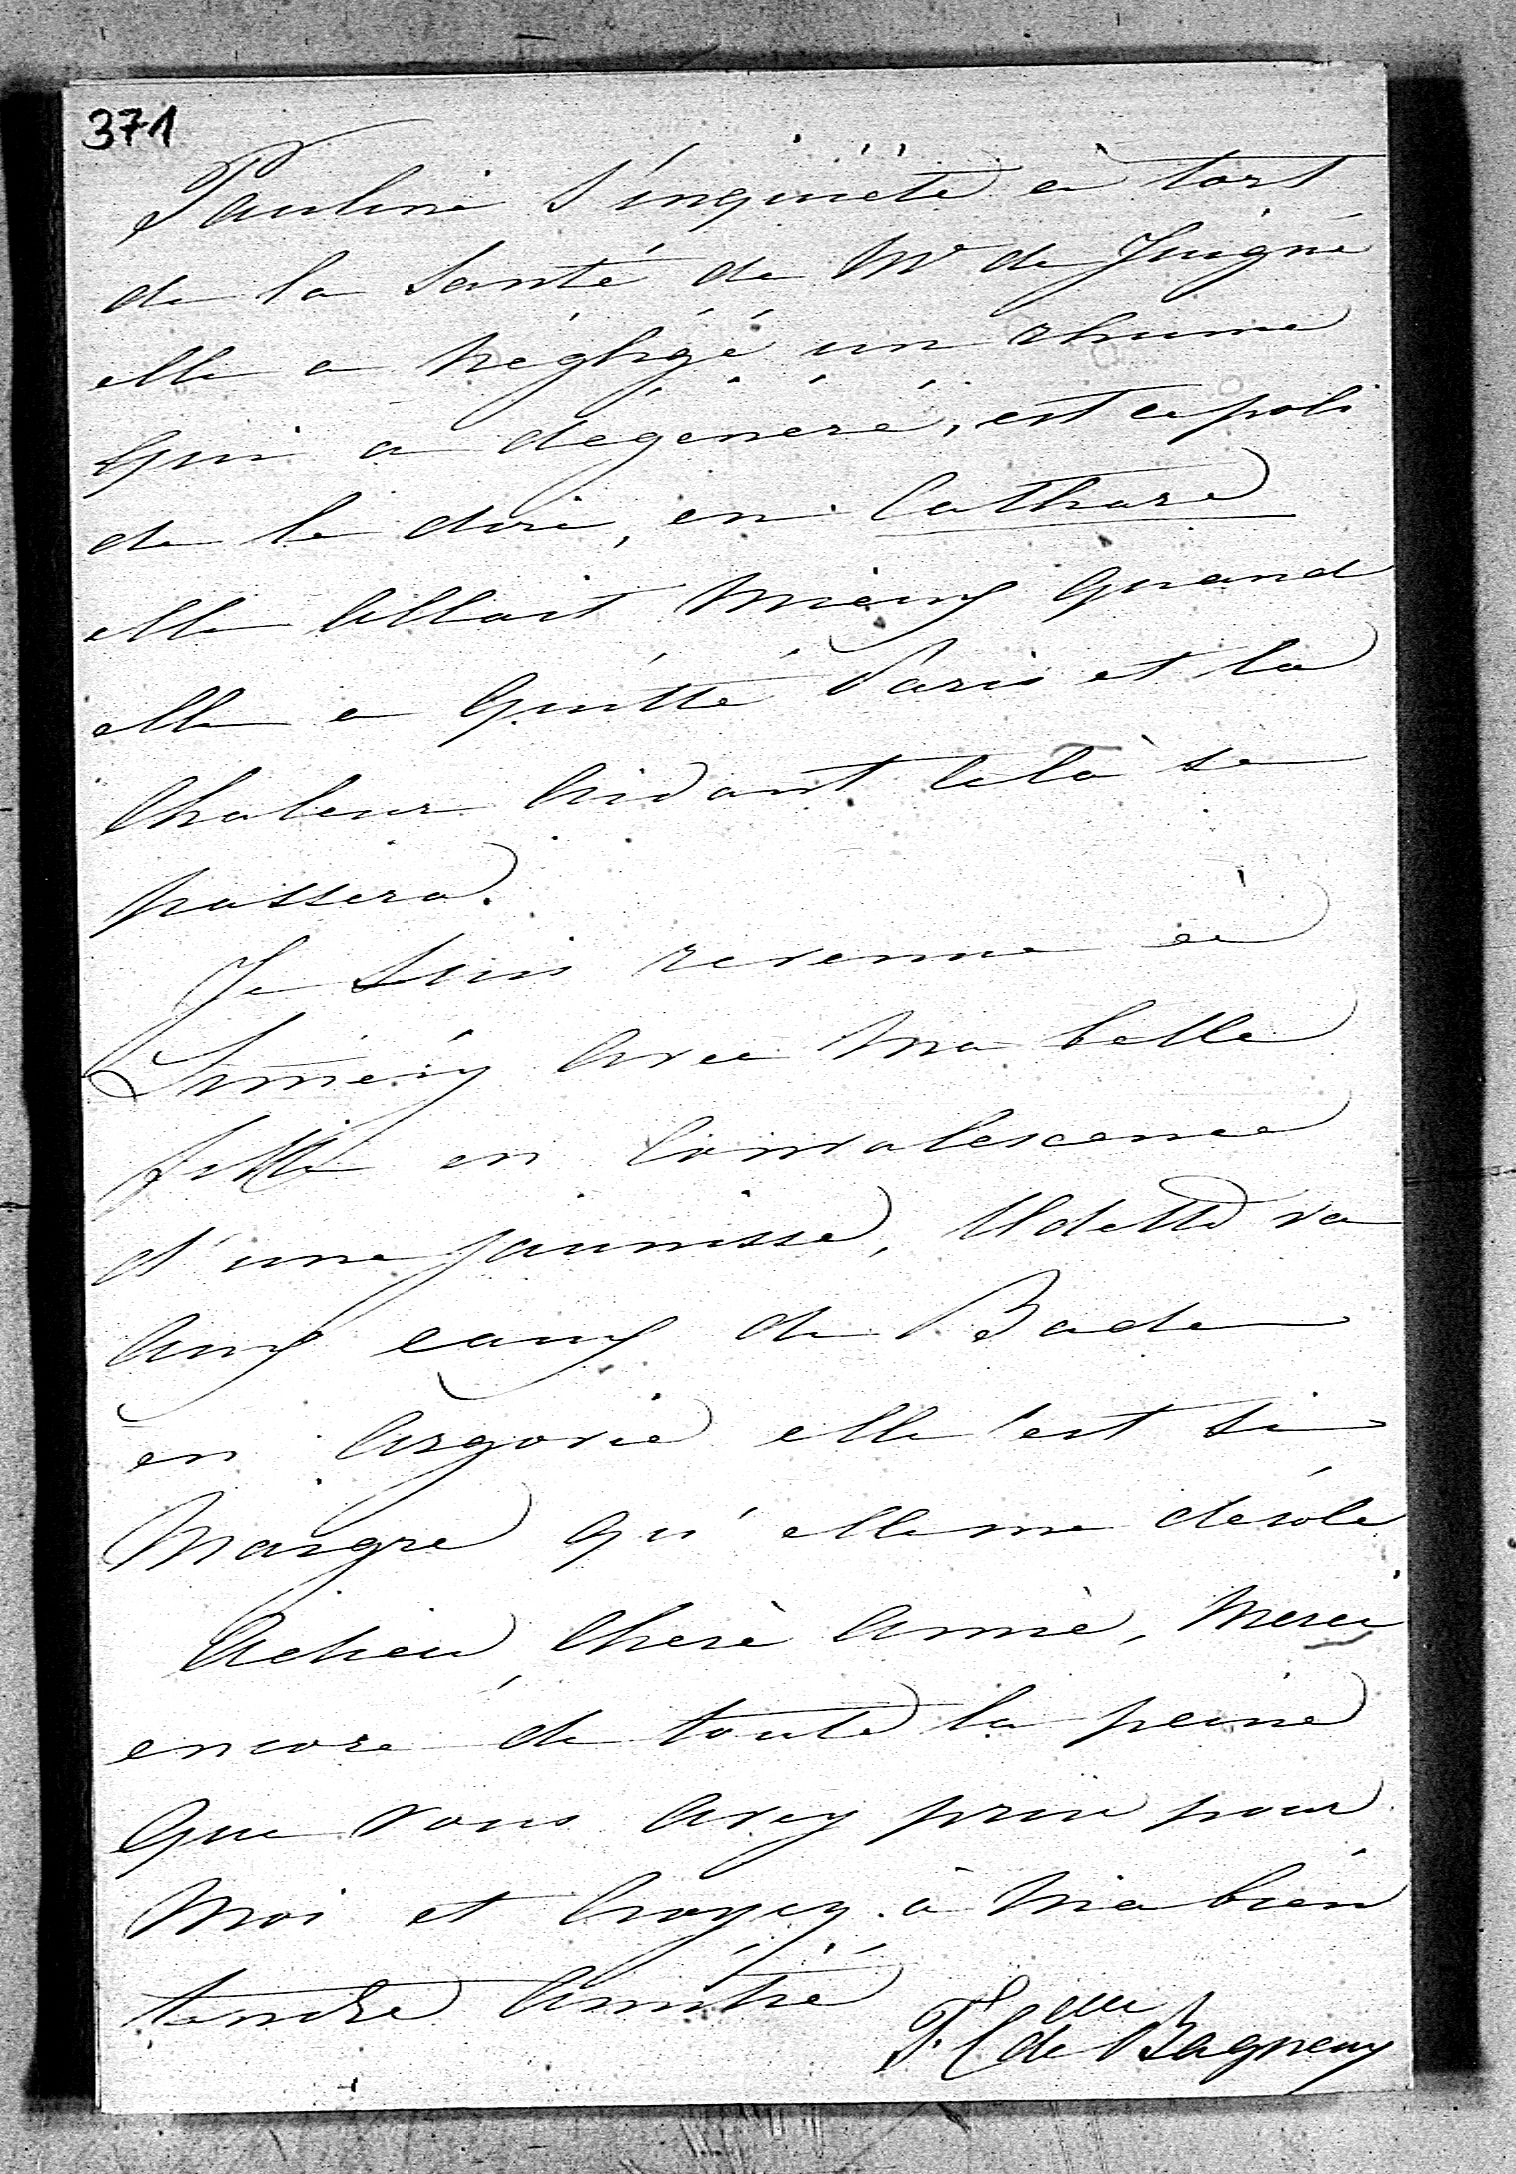 371
Pauline s'inquiète à tort
de la santé de Me de Juigné
elle a négligé un rhume
qui a dégénéré, est ce poli
de le dire, en Catharre
elle allait mieux quand
elle a quitté Paris et la
chaleur aidant cela se
passera.
Je suis revenue à
Limésy avec ma belle
fille en convalescence
d'une jaunisse, Odette va
aux eaux de Bade
en Argovie elle est si
maigre qu'elle me désole
Adieu chère amie, merci
encore de toute la peine
que vous avez prise pour
moi et croyez à ma bien
tendre amitié
F. Csse de Bagneux